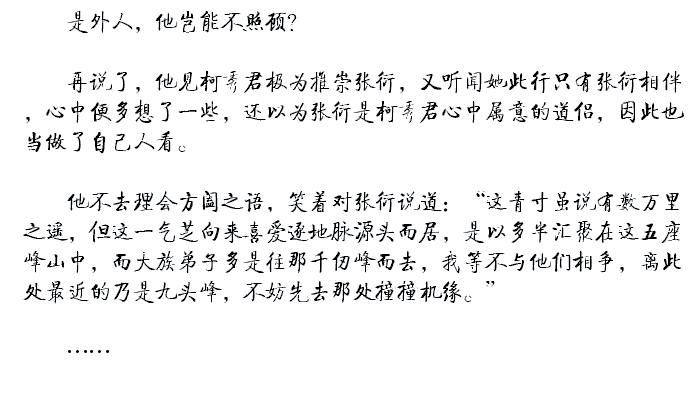 是外人，他岂能不照顾？
再说了，他见柯秀君极为推崇张衍，又听闻她此行只有张衍相伴
，心中便多想了一些，还以为张衍是柯秀君心中属意的道侣，因此也
当做了自己人看。
他不去理会方阖之语，笑着对张衍说道：“这青寸虽说有数万里
之遥，但这一气芝向来喜爱逐地脉源头而居，是以多半汇聚在这五座
峰山中，而大族弟子多是往那千仞峰而去，我等不与他们相争，离此
处最近的乃是九头峰，不妨先去那处撞撞机缘。”
……